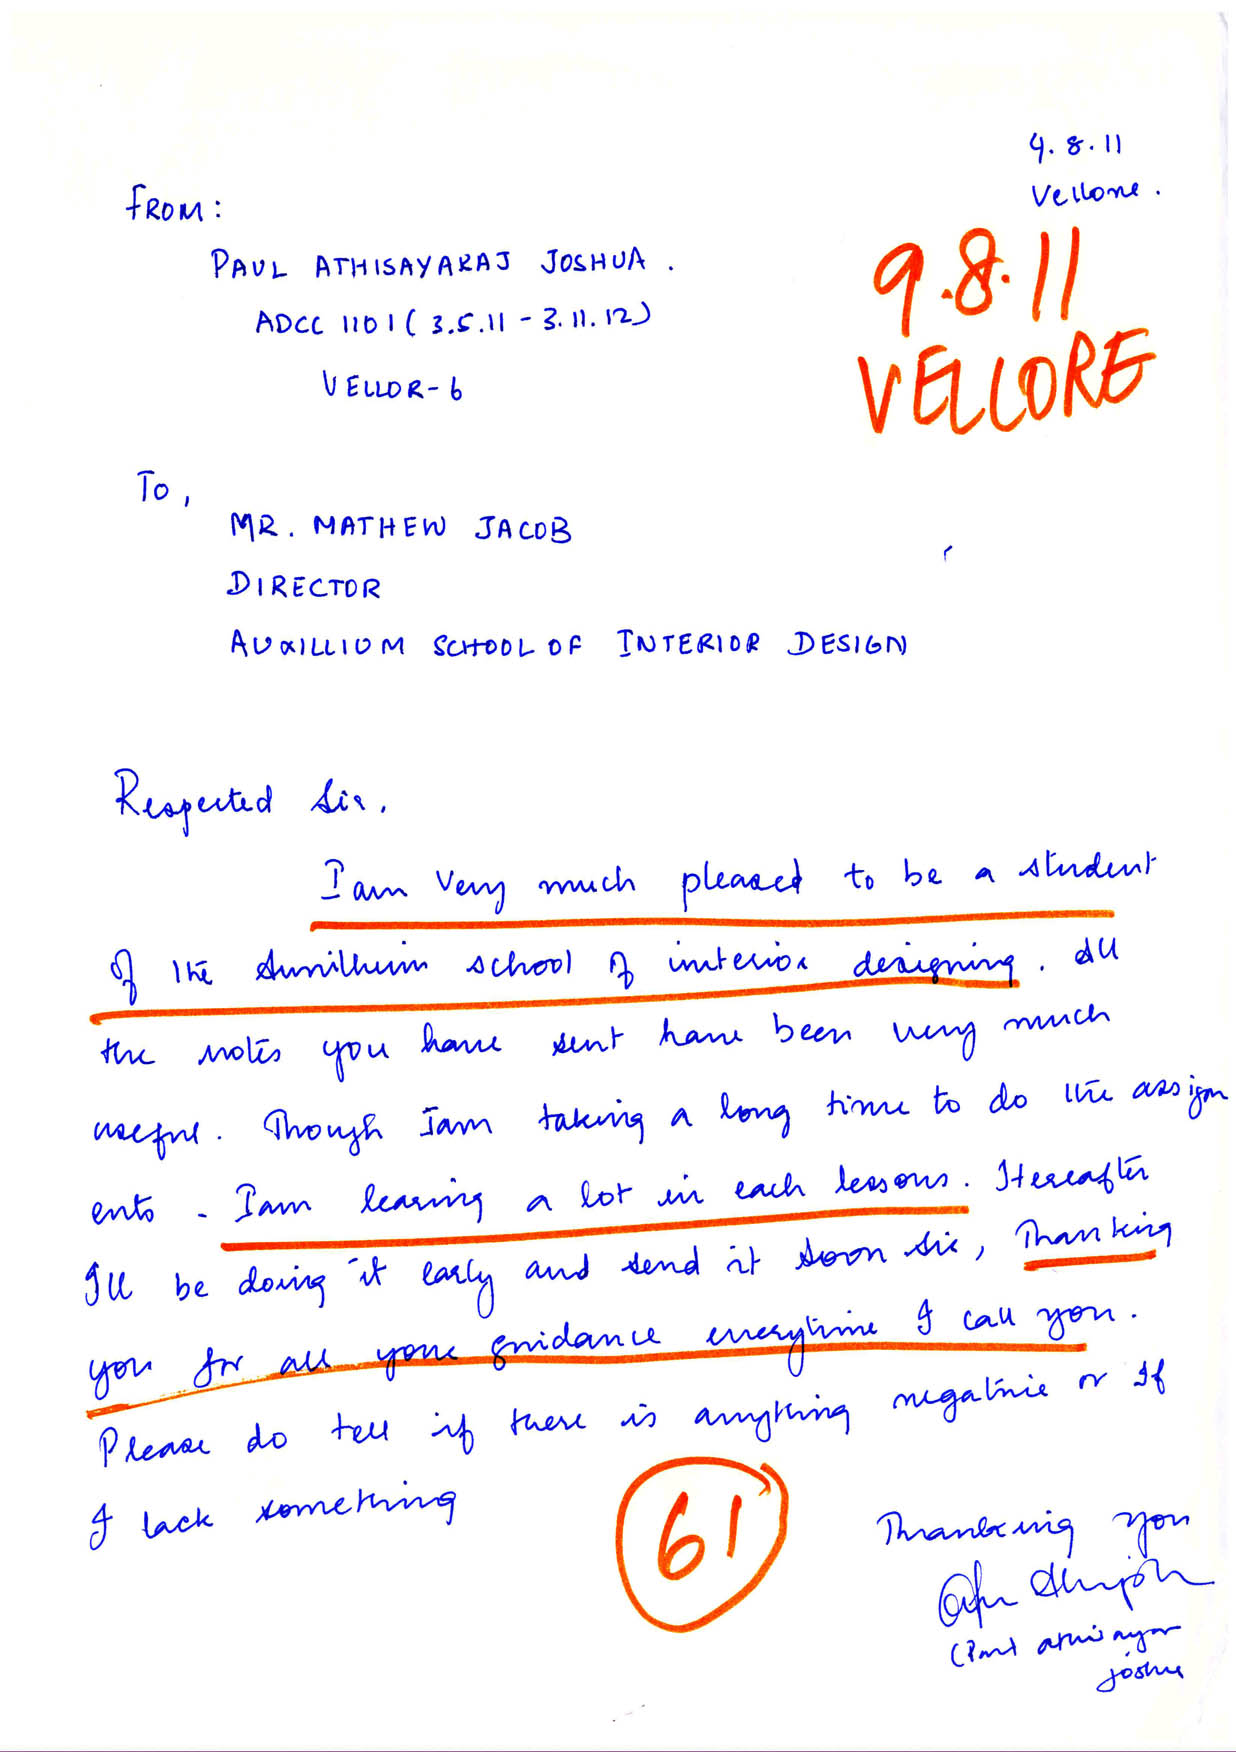 9.8.11
Vellore.
FROM:
PAUL ATHISAYARAJ JOSHUA.
ADCC 1101 (3.5.11 - 3.11.12)
VELLOR-6
9.8.11
VELLORE
To,
MR. MATHEW JACOB
DIRECTOR
AUXILLIUM SCHOOL OF INTERIOR DESIGN
Respected Sir.
I am very much pleased to be a student
of the school of interior designing. All
the notes you have sent have been very much
useful. Though I am taking a long time to do the assign
ents. I am learing a lot in each lessons. Hereafter
I'll be doing it early and send it soon Sir, Thanking
you for all your guidance everytime I call you.
Please do tell if there is anything negative or If
I lack something
61
Thanking you
(Paul